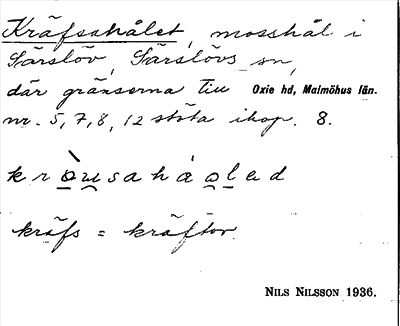 Kräfsahålet, mosshål i
Särslöv, Särslövs sn,
där gränserna till Oxie hd, Malmöhus län.
nr. 5, 7, 8, 12 stöta ihop. 8.
kräfs = kräftor.
NILS NILSSON 1936.